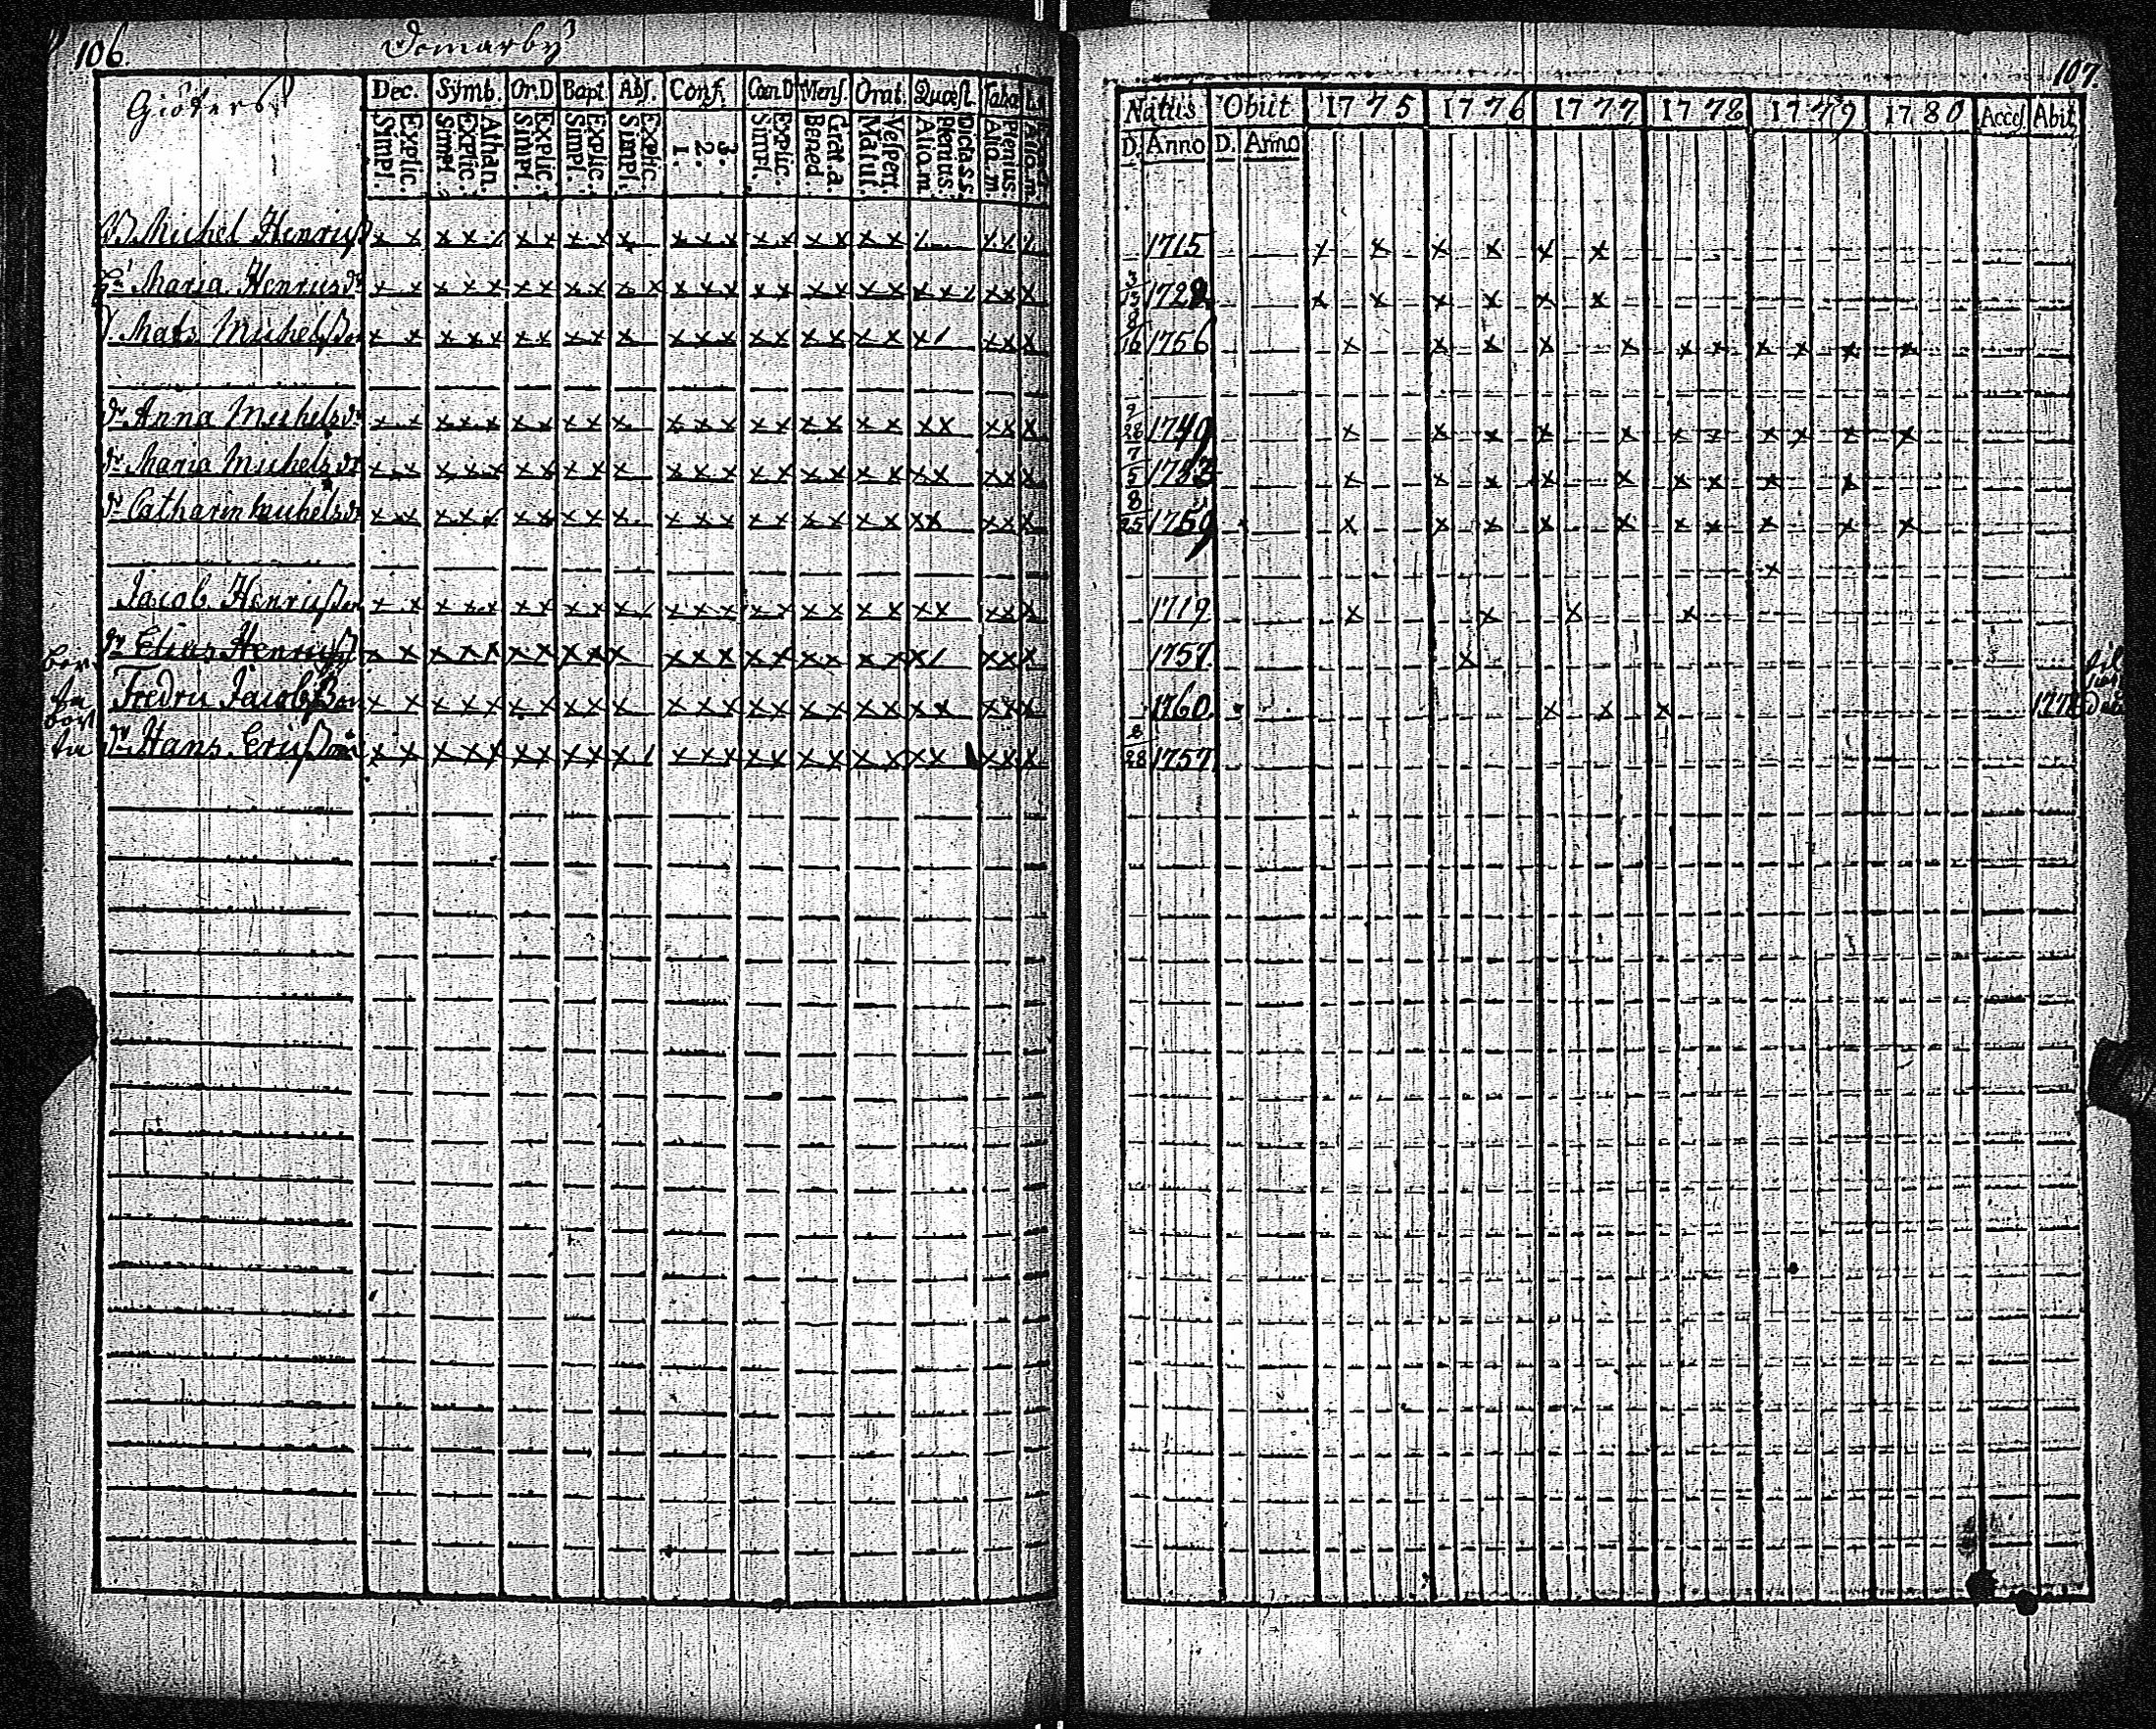 106.
Domarby
Giöters
Dec. Symb. Or.D Bapt. Abs. Conf. Cœn.D Mens. Orat. Quæst.
Explic. Simpl.
Athan. Explic. Simpl.
Explic. Simpl.
Explic. Simpl.
Explic. Simpl.
3. 2. 1.
Explic. Simpl.
Grat. a. Bened.
Vespert. Matut.
Dicta s s. Plenius. Alio. m.
Plenius. Alio. m.
Michel Henriss x x x x x x x x x x x x x x x x x
Maria Henrics dr x x x x x x x x x x x x x x x x x
Mats Michelsson x x x x x x x x x x x x x x x x x
dr Anna Michels dr x x x x x x x x x x x x x x x x x
dr Maria Michels dr x x x x x x x x x x x x x x x x x
dr Catharin Michels dr x x x x x x x x x x x x x x x x x
Jacob Henrisson x x x x x x x x x x x x x x x x x
Elias Henriss x x x x x x x x x x x x x x x x x
Fredric Jacobsson x x x x x x x x x x x x x x x x x
Hans Ericsson x x x x x x x x x x x x x x x x x
107.
Natus Obiit 1775 1776 1777 1778 1779 1780 Acces. Abit
D. Anno D. Anno
1715 x x x x x x
3/13 172 x x x x x x
8/16 1756 x x x x x x x x x x x
9/28 1749 x x x x x x x x x x x
7/5 1753 x x x x x x x x x
8/25 1759 x x x x x x x x x x
x
1719 x x x x
1757. x
1760. x x x 1778
8/28 1757